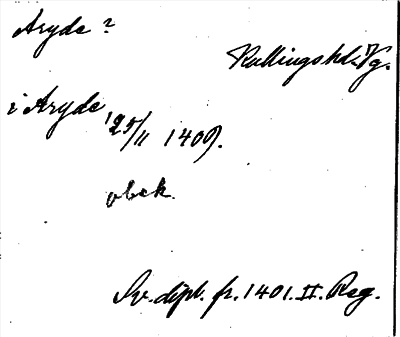 Aryde ?
Kullingshd. Vg.
i Aryde
25/11 1409.
obek.
Sv. dipl. fr. 1401. II. Reg.